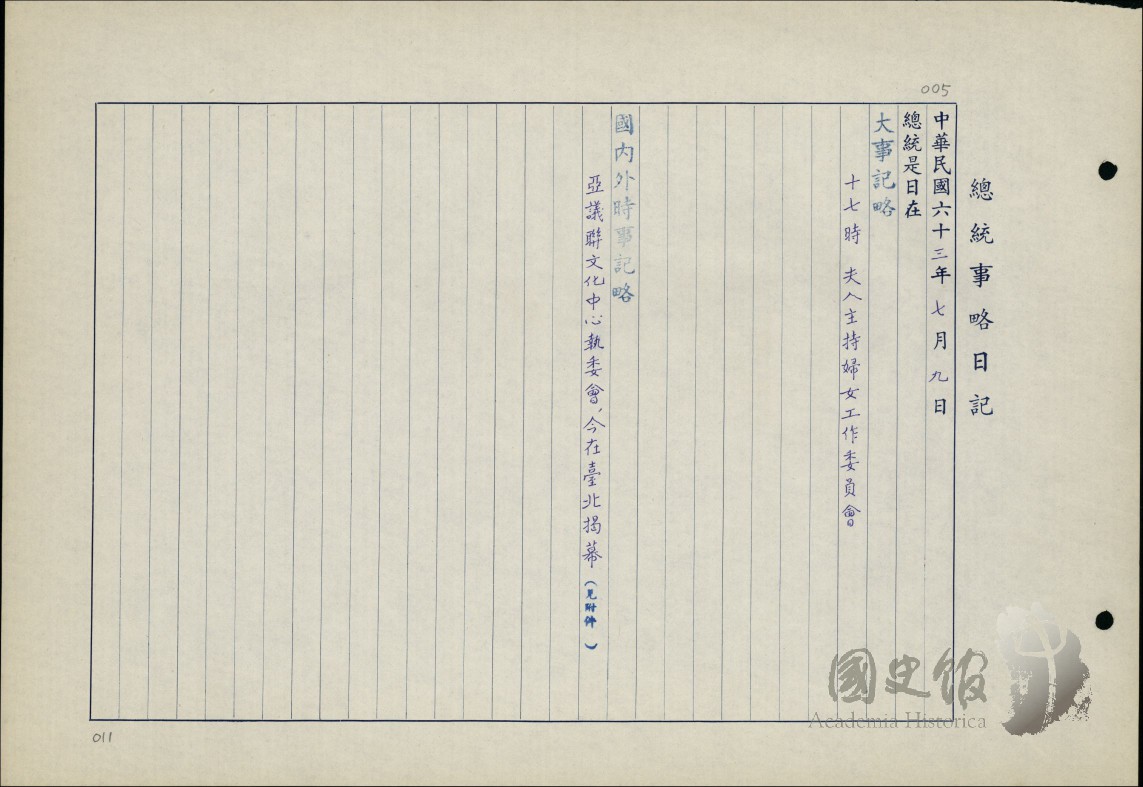 005
總統事略日記
中華民國六十三年七月九日
總統是日在
大事記略
十七時 夫人主持婦女工作委員會
國內外時事記略
亞議聯文化中心執委會，今在臺北揭幕（見附件）
國史館
Academia Historica
011